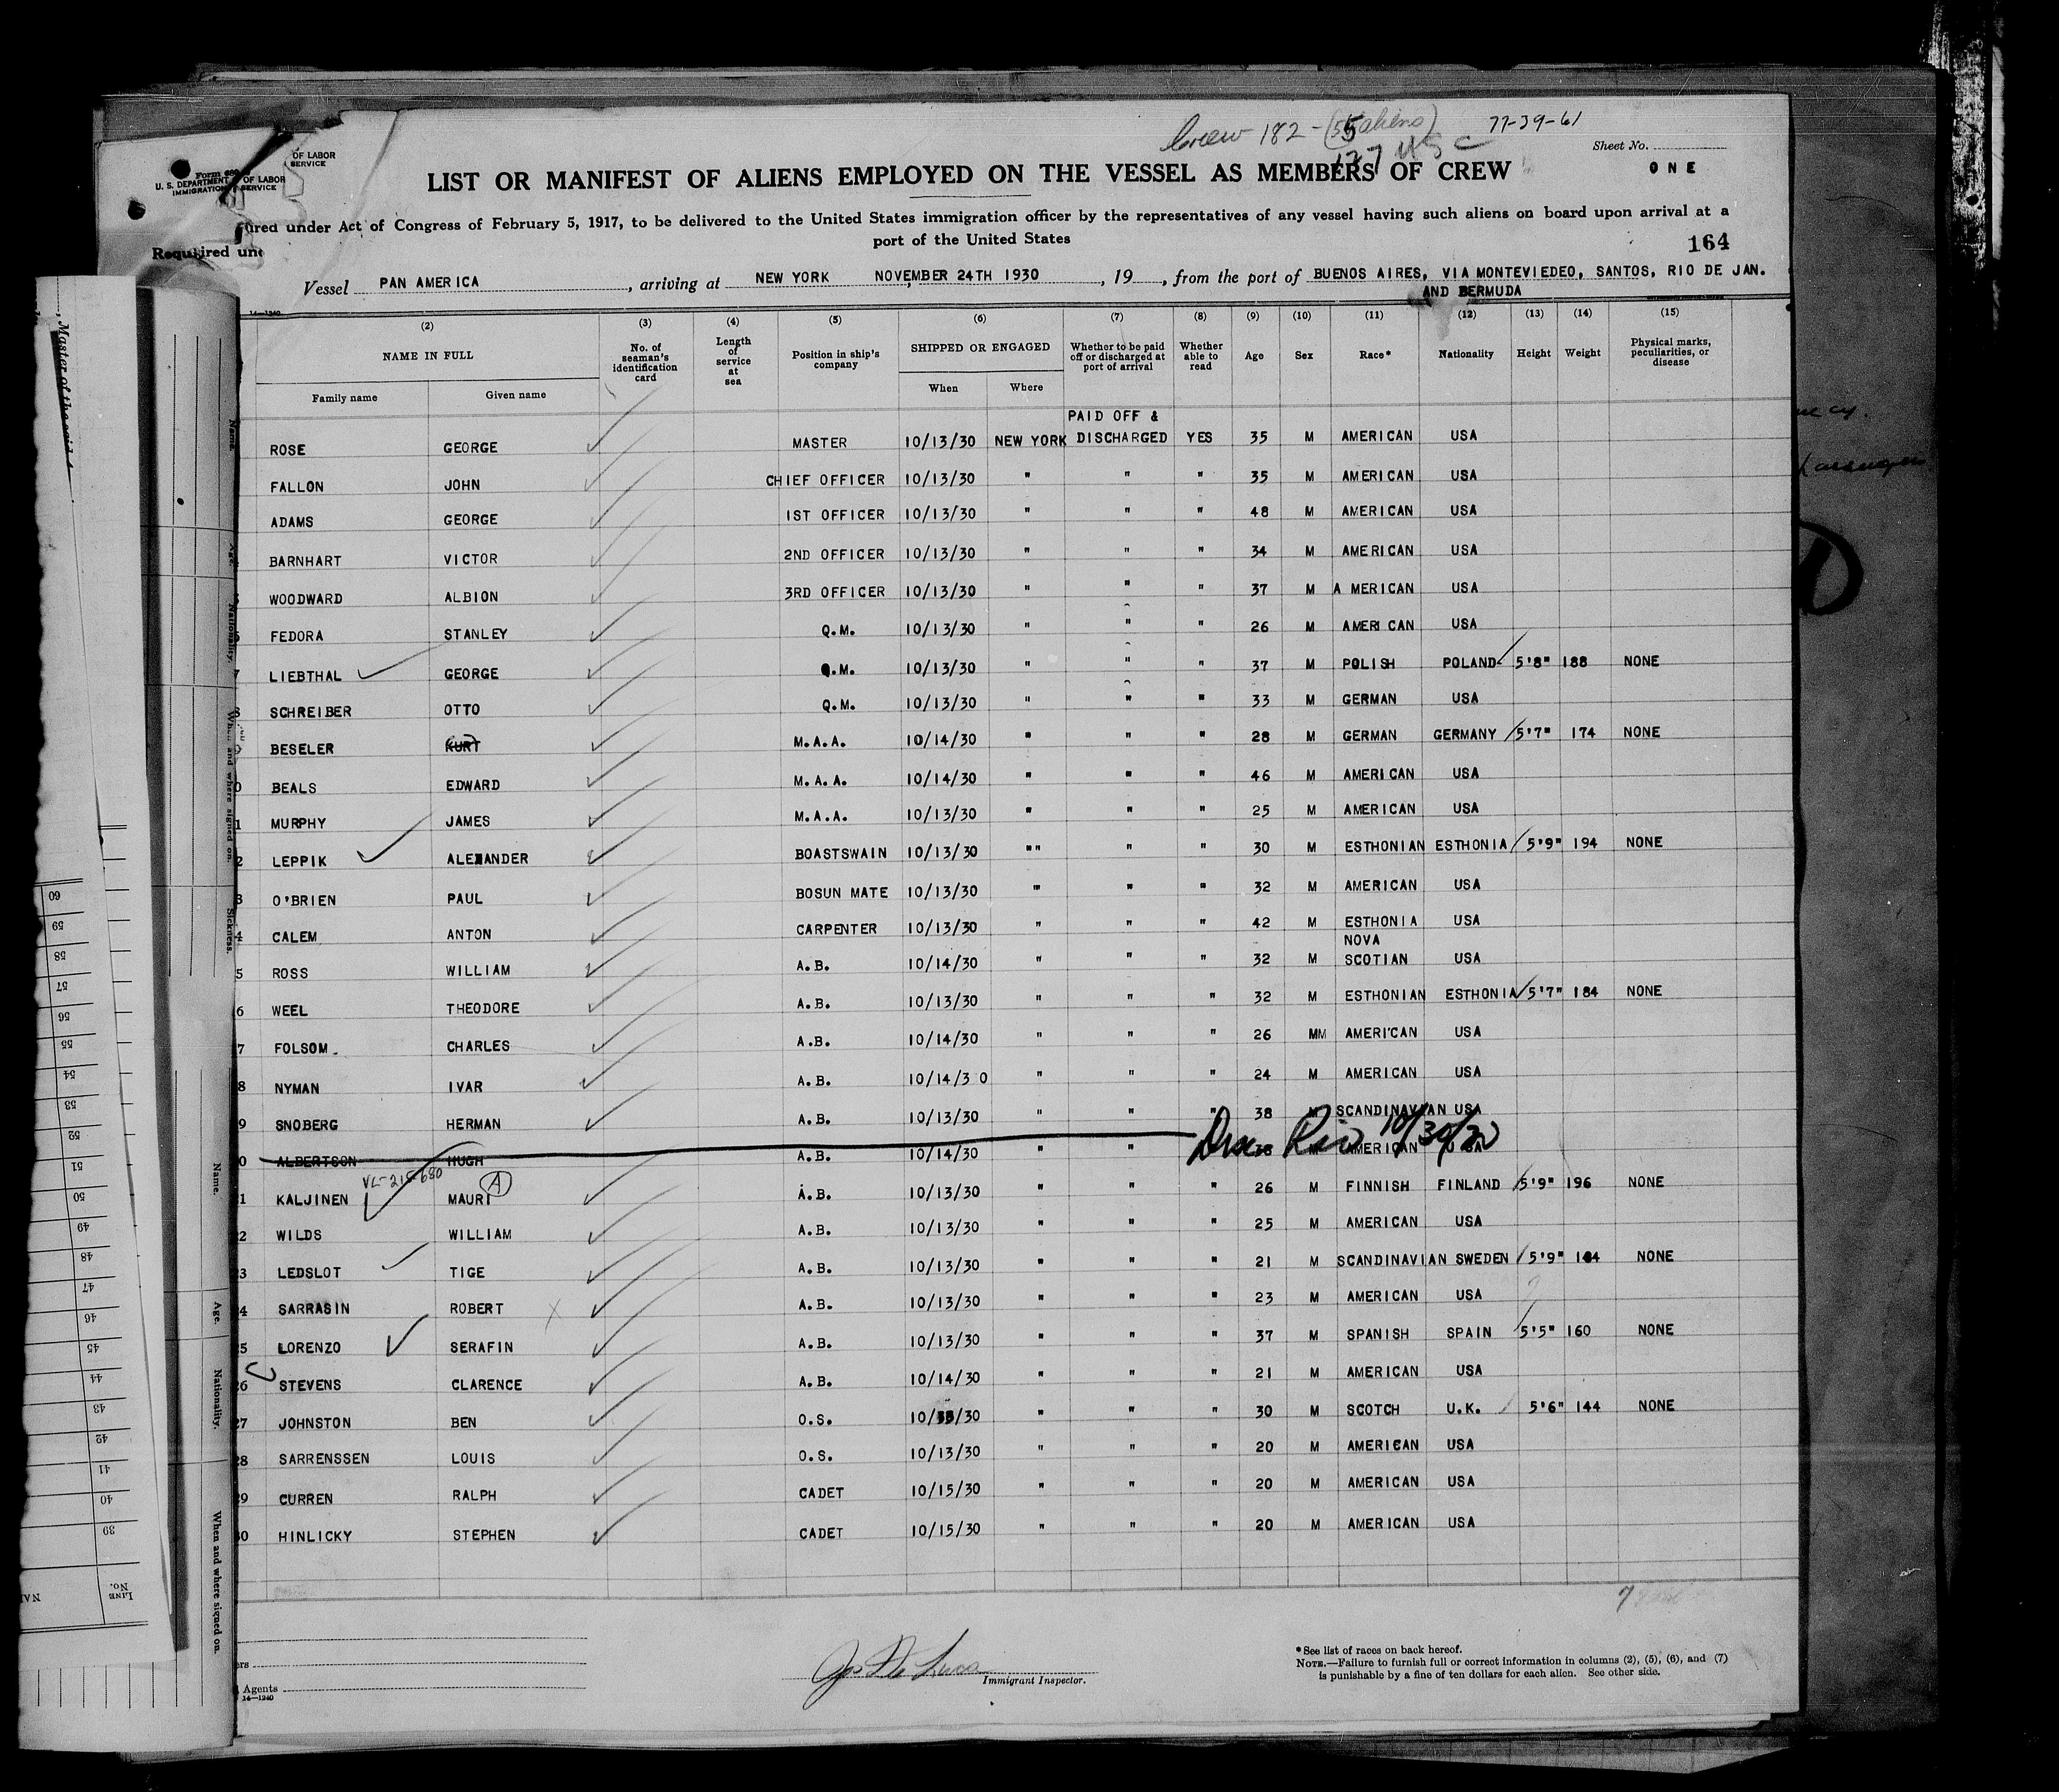 Crew 182 - (55 aliens) 77-39-61
127 USC
Sheet No.
ONE
Form 680
U. S. DEPARTMENT OF LABOR
IMMIGRATION SERVICE
OF LABOR
SERVICE
LIST OR MANIFEST OF ALIENS EMPLOYED ON THE VESSEL AS MEMBERS OF CREW
ired under Act of Congress of February 5, 1917, to be delivered to the United States immigration officer by the representatives of any vessel having such aliens on board upon arrival at a
Required und
port of the United States
164
Vessel PAN AMERICA, arriving at NEW YORK NOVEMBER 24TH 1930, 19, from the port of BUENOS AIRES, VIA MONTEVIEDEO, SANTOS, RIO DE JAN.
AND BERMUDA
14—1240
(2) (3) (4) (5) (6) (7) (8) (9) (10) (11) (12) (13) (14) (15)
NAME IN FULL
Family name Given name
No. of seaman's identification card
Length of service at sea
Position in ship's company
SHIPPED OR ENGAGED
When Where
Whether to be paid off or discharged at port of arrival
Whether able to read
Age Sex Race* Nationality Height Weight
Physical marks, peculiarities, or disease
PAID OFF &
ROSE GEORGE MASTER 10/13/30 NEW YORK DISCHARGED YES 35 M AMERICAN USA
FALLON JOHN CHIEF OFFICER 10/13/30 " " " 35 M AMERICAN USA
ADAMS GEORGE 1ST OFFICER 10/13/30 " " " 48 M AMERICAN USA
BARNHART VICTOR 2ND OFFICER 10/13/30 " " " 34 M AMERICAN USA
WOODWARD ALBION 3RD OFFICER 10/13/30 " " " 37 M A MERICAN USA
FEDORA STANLEY Q.M. 10/13/30 " " " 26 M AMERICAN USA
7 LIEBTHAL GEORGE Q.M. 10/13/30 " " " 37 M POLISH POLAND 5'8" 188 NONE
SCHREIBER OTTO Q.M. 10/13/30 " " " 33 M GERMAN USA
BESELER KURT M.A.A. 10/14/30 " " " 28 M GERMAN GERMANY 5'7" 174 NONE
0 BEALS EDWARD M.A.A. 10/14/30 " " " 46 M AMERICAN USA
1 MURPHY JAMES M.A.A. 10/13/30 " " " 25 M AMERICAN USA
2 LEPPIK ALEXANDER BOASTSWAIN 10/13/30 "" " " 30 M ESTHONIAN ESTHONIA 5'9" 194 NONE
3 O'BRIEN PAUL BOSUN MATE 10/13/30 " " " 32 M AMERICAN USA
4 CALEM ANTON CARPENTER 10/13/30 " " " 42 M ESTHONIA USA
NOVA
5 ROSS WILLIAM A.B. 10/14/30 " " " 32 M SCOTIAN USA
6 WEEL THEODORE A.B. 10/13/30 " " " 32 M ESTHONIAN ESTHONIA 5'7" 184 NONE
7 FOLSOM CHARLES A.B. 10/14/30 " " " 26 MM AMERICAN USA
8 NYMAN IVAR A.B. 10/14/3 0 " " " 24 M AMERICAN USA
9 SNOBERG HERMAN A.B. 10/13/30 " " " 38 M SCANDINAVIAN USA
0 ALBERTSON HUGH A.B. 10/14/30 " " M AMERICAN USA
Rio 10/30/30
VL-215-680
1 KALJINEN MAURI (A) A.B. 10/13/30 " " " 26 M FINNISH FINLAND 5'9" 196 NONE
2 WILDS WILLIAM A.B. 10/13/30 " " " 25 M AMERICAN USA
3 LEDSLOT TIGE A.B. 10/13/30 " " " 21 M SCANDINAVIAN SWEDEN 5'9" 184 NONE
4 SARRASIN ROBERT X A.B. 10/13/30 " " " 23 M AMERICAN USA
5 LORENZO SERAFIN A.B. 10/13/30 " " " 37 M SPANISH SPAIN 5'5" 160 NONE
26 STEVENS CLARENCE A.B. 10/14/30 " " " 21 M AMERICAN USA
27 JOHNSTON BEN O.S. 10/ /30 " " " 30 M SCOTCH U.K. 5'6" 144 NONE
28 SARRENSSEN LOUIS O.S. 10/13/30 " " " 20 M AMERICAN USA
29 CURREN RALPH CADET 10/15/30 " " " 20 M AMERICAN USA
30 HINLICKY STEPHEN CADET 10/15/30 " " " 20 M AMERICAN USA
7
Jos De Luca
Immigrant Inspector.
Agents
14—1240
*See list of races on back hereof.
NOTE.—Failure to furnish full or correct information in columns (2), (5), (6), and (7)
is punishable by a fine of ten dollars for each alien. See other side.
Name.
Age.
Nationality.
When and where signed on.
Sickness.
Name.
Age.
Nationality.
When and where signed on.
60
59
58
57
56
55
54
53
52
51
50
49
48
47
46
45
44
43
42
41
40
39
LINE No.